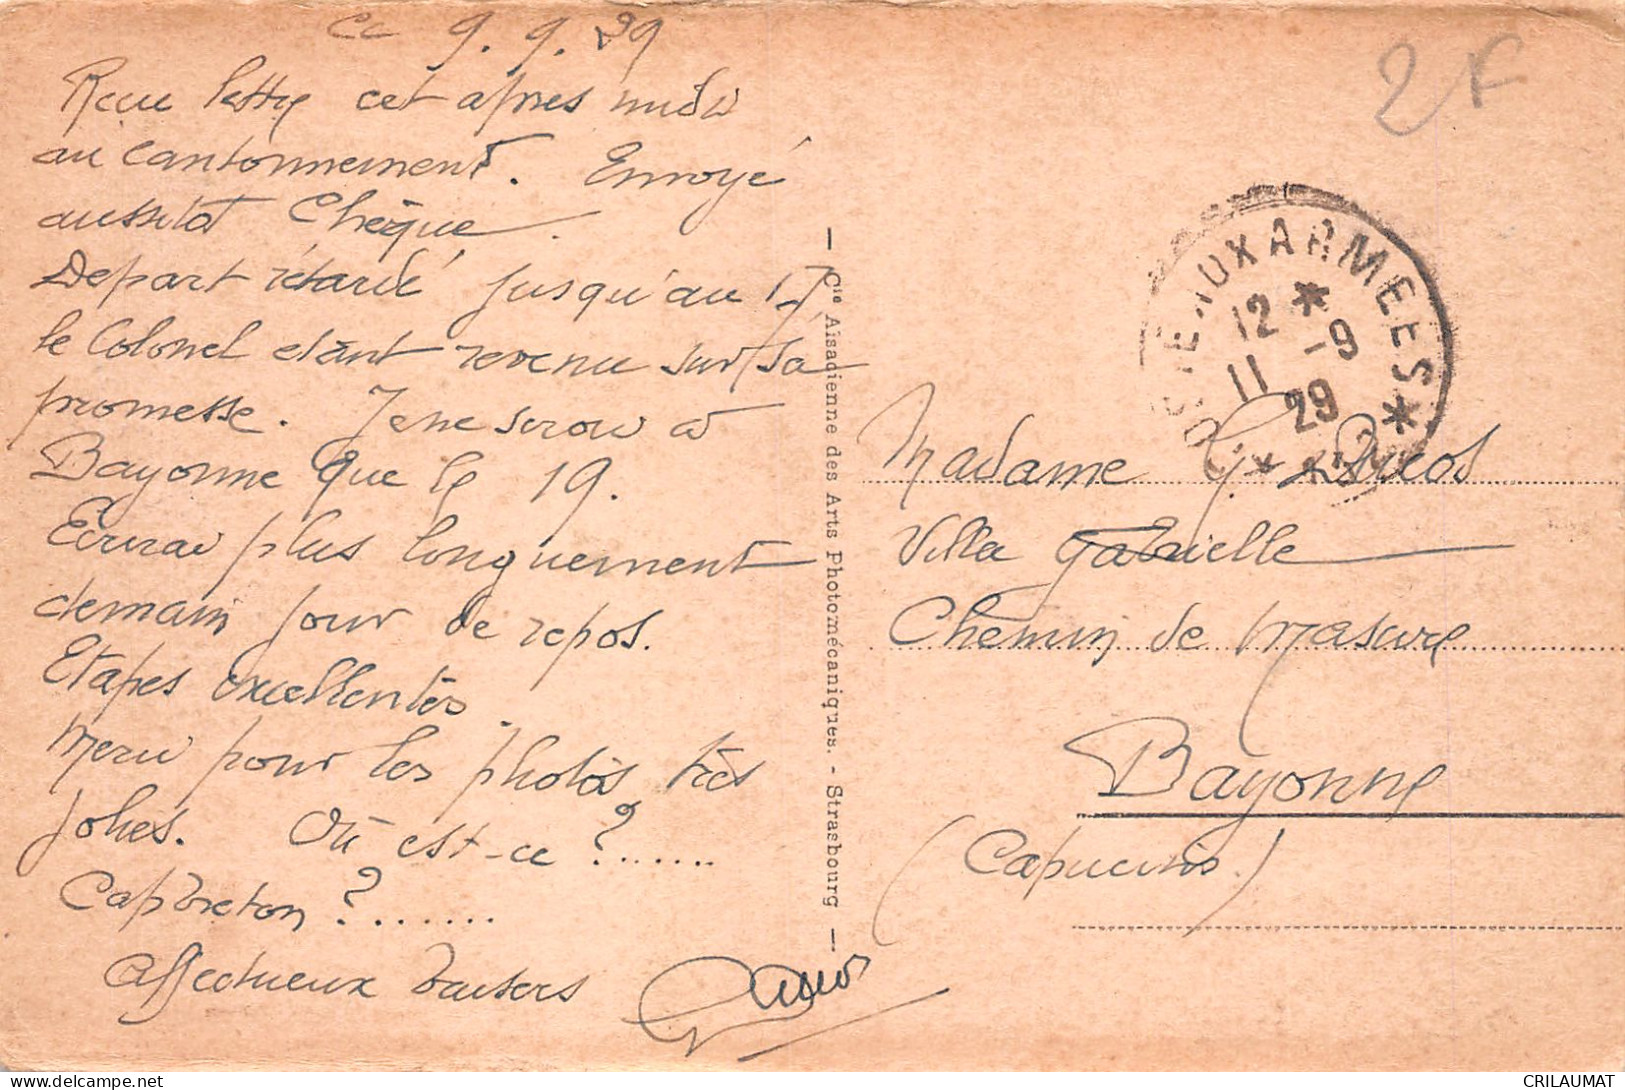 Ce 9.9.29
Reçu lettre cet après midi
au cantonnement. Envoyé
aussitôt Chèque.
Depart rétardé jusqu'au 17
le Colonel étant revenu sur sa
promesse. Je ne serai à
Bayonne que le 19.
Ecrirai plus longuement
demain jour de repos.
Etapes excellentes.
Merci pour les photos très
jolies. Où est-ce ?.......
Capbreton ?.......
Affectueux baisers
2F
POSTE AUX ARMEES
12 *
11 -9
29
Madame G. Ducos
Villa Gabrielle
Chemin de Masure
Bayonne
(Capucins)
— Cie Alsacienne des Arts Photomécaniques. - Strasbourg —
delcampe.net
CRILAUMAT